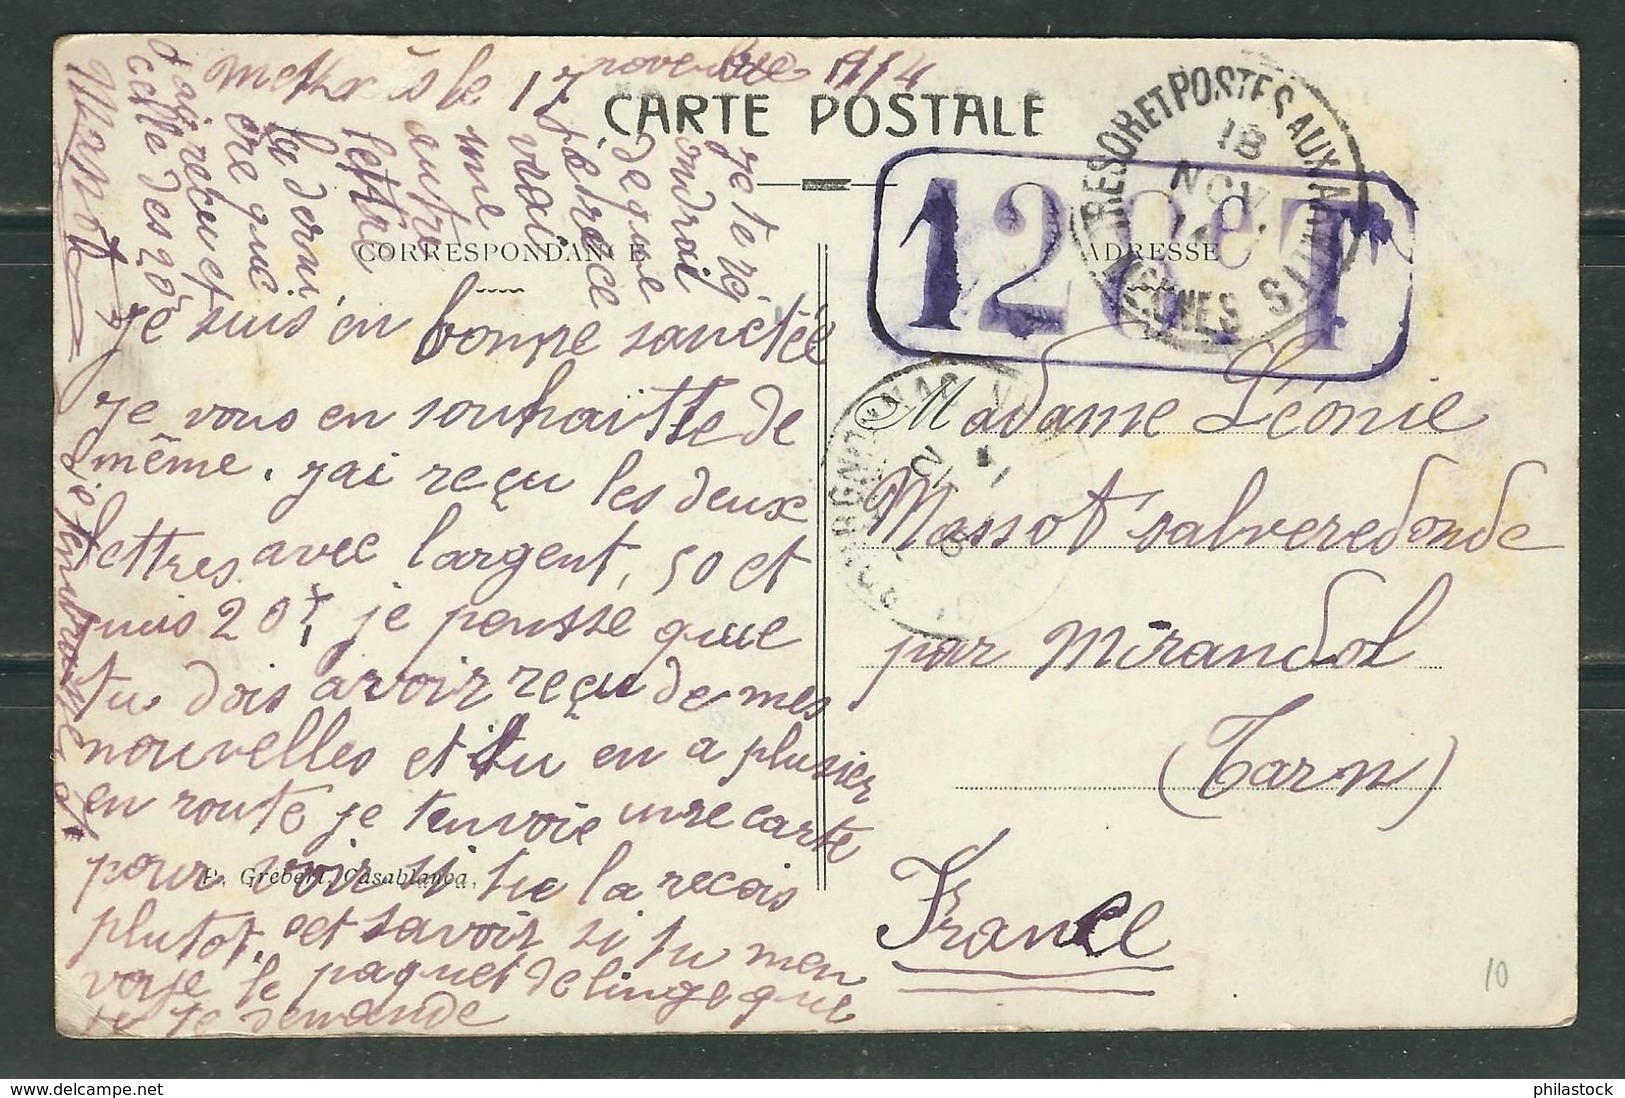 Meknès le 17 novembre 1914
CARTE POSTALE
CORRESPONDANCE
ADRESSE
je suis en bonne sanctée
je vous en souhaitte de
même. jai reçu les deux
lettres avec largent, 50 et
puis 20f, je pensse que
tu dois avoir reçu de mes
nouvelles et tu en a plusier
en route je tenvoie une carte
pour voir si tu la recois
plutot, et savoir si tu men
voye le paquet de linge que
je te demande
P. Grébert, Casablanca.
je te ré
ondrai
de que
jéérece
vrai
une
autre
lettre
la derni
ere que
jai reçu et
celle des 20f
Massot
je tembrasse et
TRESOR ET POSTES AUX ARMEES
18
NOV
14
128eT
Madame Léonie
Massot salveredonde
par Mirandol
(Tarn)
France
10
philastock